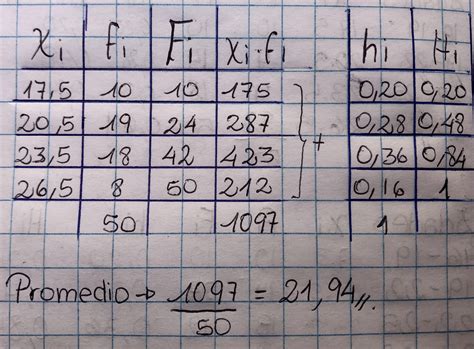 xi fi Fi xi·fi hi Hi
17,5 10 10 175 0,20 0,20
20,5 19 24 287 0,28 0,48
23,5 18 42 423 0,36 0,84
26,5 8 50 212 0,16 1
+
50 1097 1
Promedio → 1097/50 = 21,94